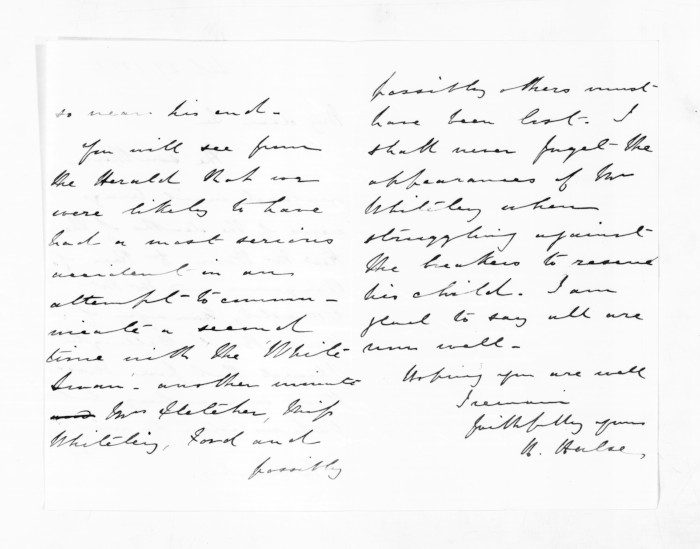 so near his end -
You will see from
the Herald that we
were likely to have
had a most serious
accident in an
attempt to commu-
nicate a second
time with the 'White
Swan' - another minute
and Mrs Fletcher, Miss
Whiteley, Ford and
possibly
possibly others must
have been lost - I
shall never forget the
appearances of Mr
Whiteley when
struggling against
the breakers to rescue
his child. I am
glad to say all are
now well -
Hoping you are well
I remain
faithfully yours
Hulse,